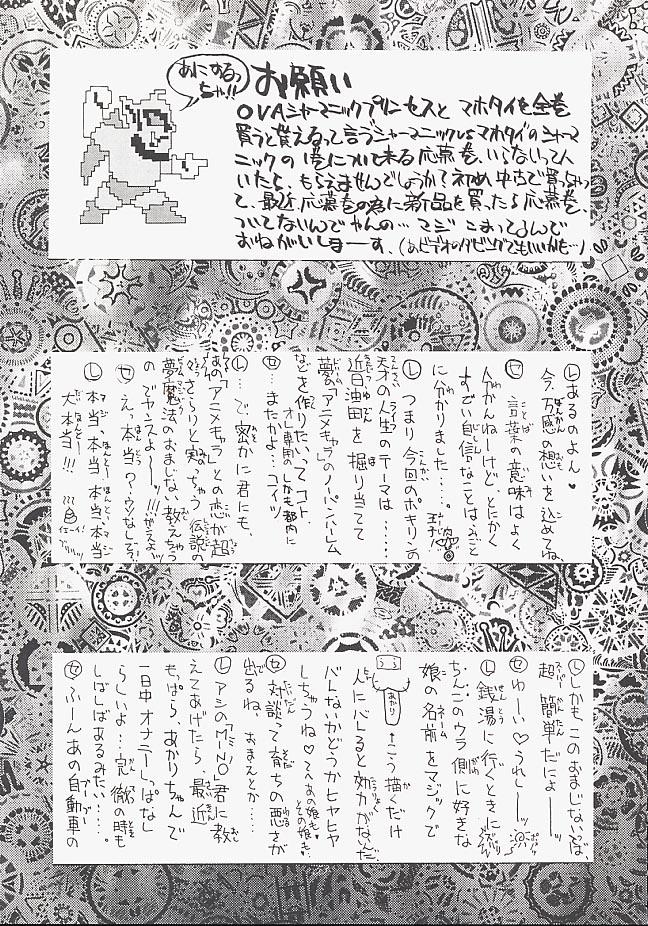 あにするっ
ちゃ!!
お願い
OVAシャーマニックプリンセスと マホタイを全巻
買うと貰えるって言うシャーマニックVSマホタイのシャーマ
ニックの1巻について来る応募巻、いらないって人
いたら、もらえませんでしょうか?初め中古で買っちゃっ
て、最近、応募巻の為に新品を買ったら応募巻、
ついてないんでやんの… マジ こまってるんで
おねがいしまーす、(あとビデオのダビングでもいいかも…)
Ⓛあるのよん♥
今、万感の想いを込めてね
Ⓨ言葉の意味はよく
分かんねーけど、とにかく
すごい自信なことはみごと
に分かりました……。
Ⓛつまり今回のポキリンの
天才の人生のテーマは……
近日油田を掘り当てて
夢の「アニメキャラ」のノーパンハーレム
などを作りたいってコト
オレ専用のしかも都内に
Ⓨまたかよ…コイツ
Ⓛ…で、密かに君にも、
あの「アニメキャラ」との恋が超
さらりと実っちゃう伝説の
夢魔法のおまじない教えちゃう
のでヤンスよーーッ!!!
Ⓨえっ本当?ウソなしろ
Ⓛ本当、本当、本当、本当
大本当!!!
Ⓛしかもこのおまじないは、
超簡単だにょーーッ
Ⓨわーい♡うれしーーッ
Ⓛ銭湯に行くときに
ちんこのウラ側に好きな
娘の名前をマジックで
あかり
↑こう描くだけ
人にバレると効力がないんだ
バレないかどうかヒヤヒヤ
しちゃうね♡
Ⓨ対談って育ちの悪さが
出るね、おまえとか……
ⓁアシのMINO君に教
えてあげたら、最近
もっぱら、あかりちゃんで
一日中オナニーしっぱなし
らしいよ…完徹の時も
しばしばあるみたい……。
Ⓨふーんあの自動車の